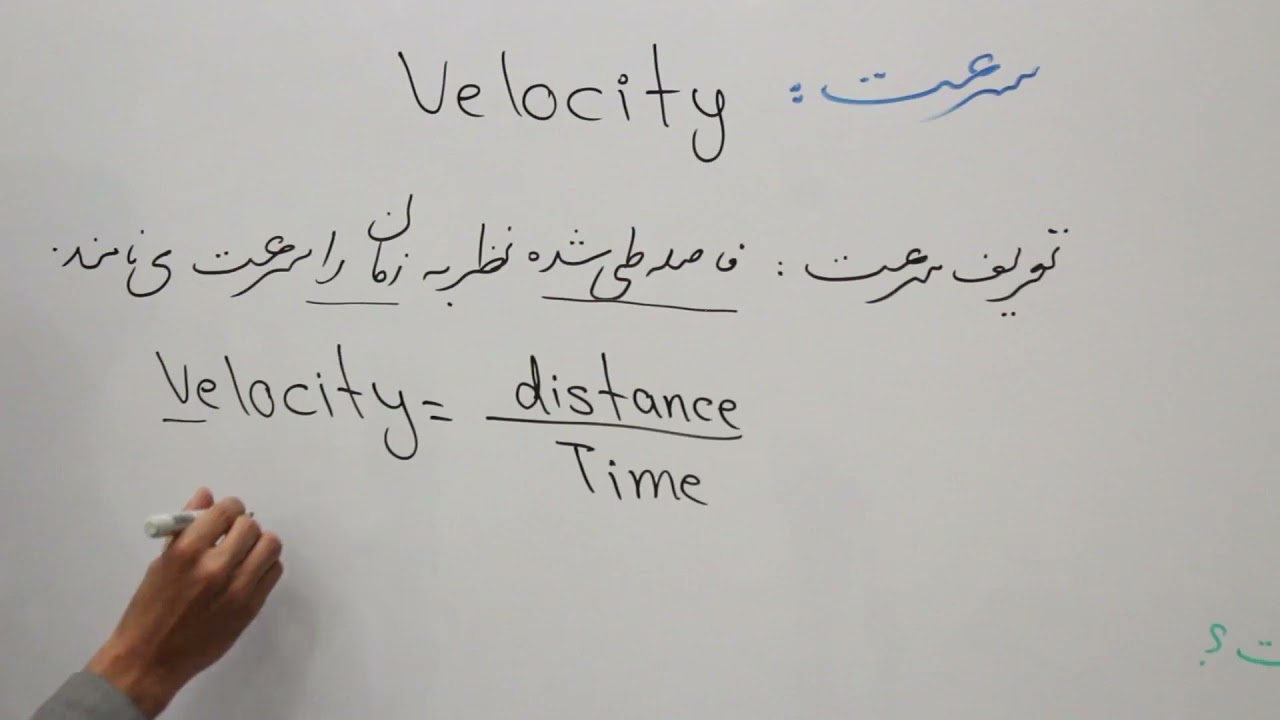 سرعت : Velocity
تعریف سرعت : فاصله طی شده نظر به زمان را سرعت می نامند.
Velocity = distance
Time
ت؟